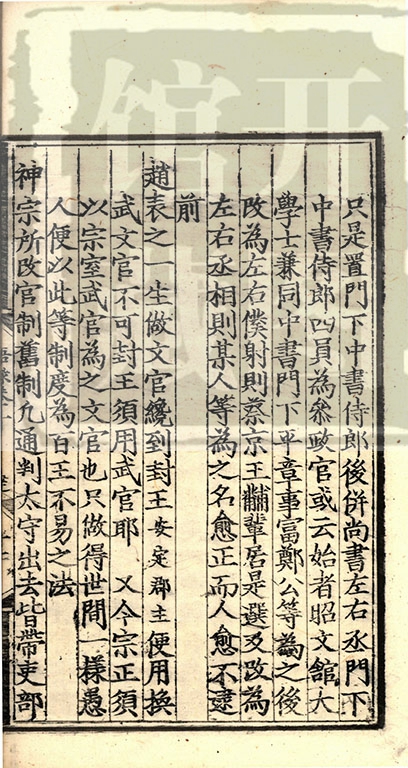 只是置門下中書侍郎後併尚書左右丞門下
中書侍郎四員為叅政官或云始者昭文館大
學士兼同中書門下平章事富鄭公等為之後
改為左右僕射則蔡京王黼輩居是選及改為
左右丞相則某人等為之名愈正而人愈不逮
前
趙表之一生做文官纔到封王安定郡主便用換
武文官不可封王須用武官耶 又今宗正須
以宗室武官為之文官也只做得世間一樣愚
人便以此等制度為百王不易之法
神宗所改官制舊制九通判太守出去皆帶吏部